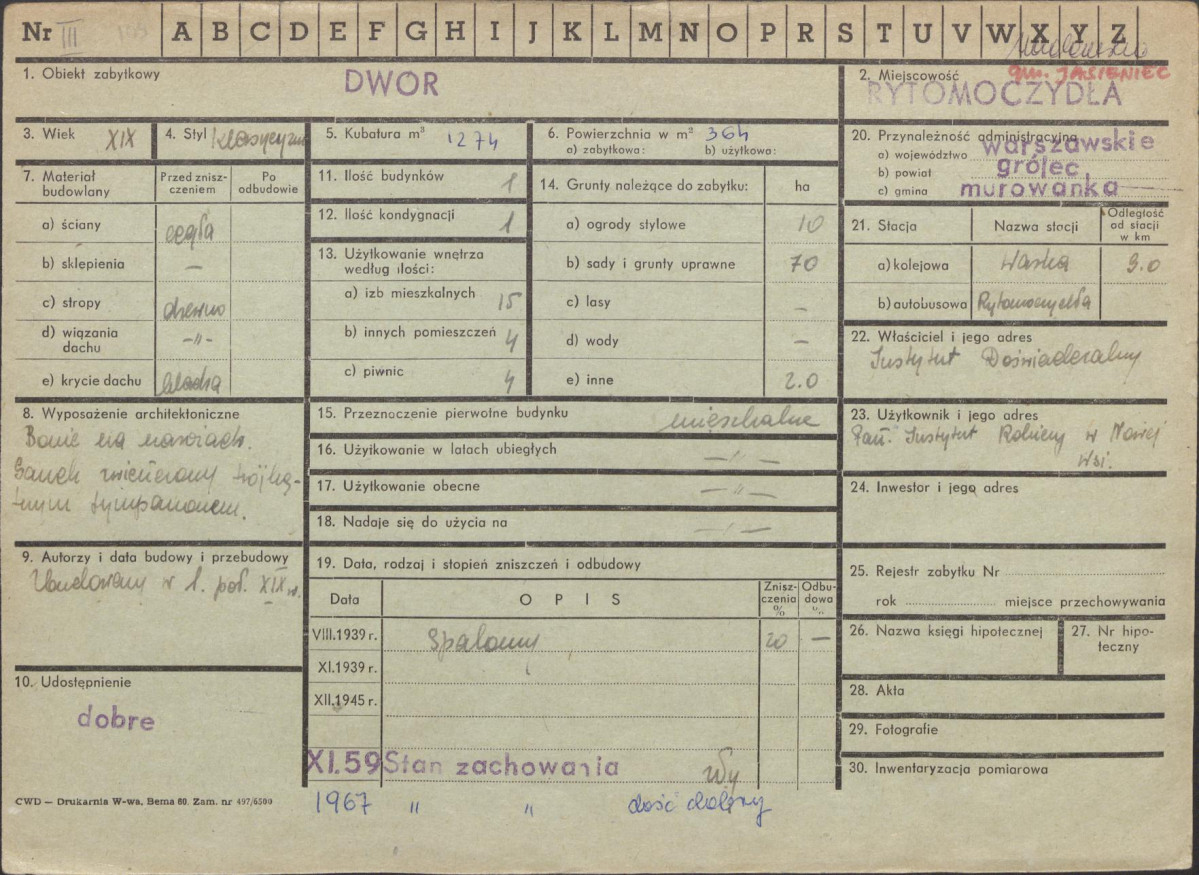 Nr III A B C D E F G H I J K L M N O P R S T U V W X Y Z
1. Obiekt zabytkowy
DWÓR
2. Miejscowość
gm. JASIENIEC
RYTOMOCZYDŁA
3. Wiek XIX
4. Styl klasycyzm
5. Kubatura m³ 1274
6. Powierzchnia w m² 364
a) zabytkowa: b) użytkowa:
7. Materiał budowlany
Przed zniszczeniem
Po odbudowie
a) ściany cegła
b) sklepienia —
c) stropy drewno
d) wiązania dachu —"—
e) krycie dachu blacha
8. Wyposażenie architektoniczne
Bonie na narożach.
Ganek zwieńczony trójką-
tnym tympanonem.
9. Autorzy i data budowy i przebudowy
Zbudowany w 1. poł. XIX w.
10. Udostępnienie
dobre
11. Ilość budynków 1
12. Ilość kondygnacji 1
13. Użytkowanie wnętrza
według ilości:
a) izb mieszkalnych 15
b) innych pomieszczeń 4
c) piwnic 4
14. Grunty należące do zabytku: ha
a) ogrody stylowe 10
b) sady i grunty uprawne 70
c) lasy —
d) wody —
e) inne 2.0
15. Przeznaczenie pierwotne budynku mieszkalne
16. Użytkowanie w latach ubiegłych —"—
17. Użytkowanie obecne —"—
18. Nadaje się do użycia na —"—
19. Data, rodzaj i stopień zniszczeń i odbudowy
Data OPIS Zniszczenia % Odbudowa %
VIII.1939 r. Spalony 20 —
XI.1939 r.
XII.1945 r.
XI.59 Stan zachowania
1967 " " dość dobry
20. Przynależność administracyjna
a) województwo warszawskie
b) powiat grójec
c) gmina murowanka
21. Stacja Nazwa stacji Odległość od stacji w km
a) kolejowa Warka 9.0
b) autobusowa Rytomoczydła
22. Właściciel i jego adres
Instytut Doświadczalny
23. Użytkownik i jego adres
Pań. Instytut Rolniczy w Nowej
Wsi.
24. Inwestor i jego adres
25. Rejestr zabytku Nr
rok miejsce przechowywania
26. Nazwa księgi hipotecznej
27. Nr hipoteczny
28. Akta
29. Fotografie
30. Inwentaryzacja pomiarowa
CWD — Drukarnia W-wa, Bema 60. Zam. nr 497/6500